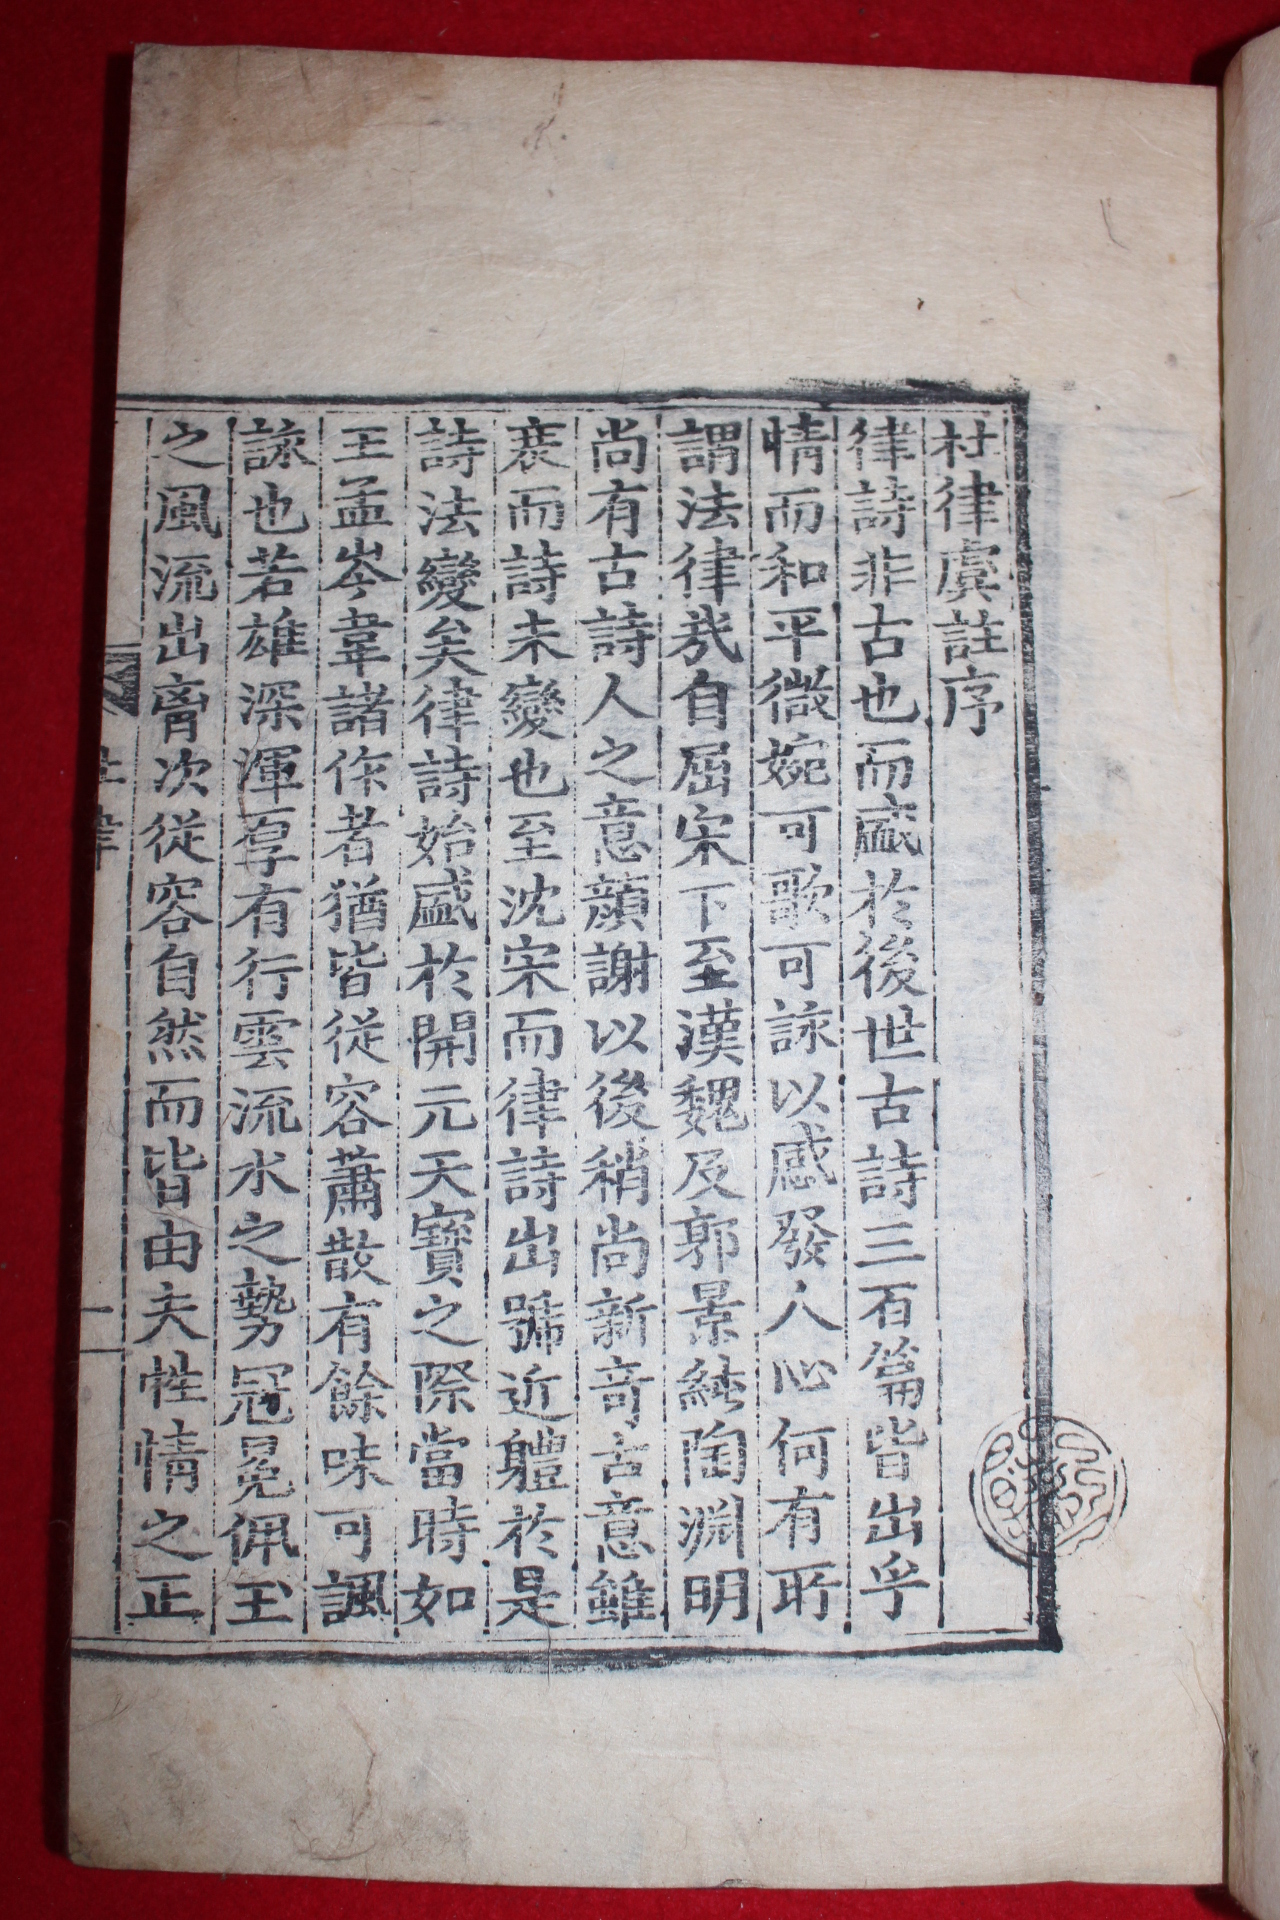 杜律虞註序
律詩非古也而盛於後世古詩三百篇皆出乎
情而和平微婉可歌可詠以感發人心何有所
謂法律㢤自屈宋下至漢魏及郭景純陶淵明
尚有古詩人之意顔謝以後稍尚新竒古意雖
衰而詩未變也至沈宋而律詩出號近軆於是
詩法變矣律詩始盛於開元天寶之際當時如
王孟岑韋諸作者猶皆從容蕭散有餘味可諷
詠也若雄深渾厚有行雲流水之勢冠冕佩玉
之風流出胷次從容自然而皆由夫性情之正
杜律
一